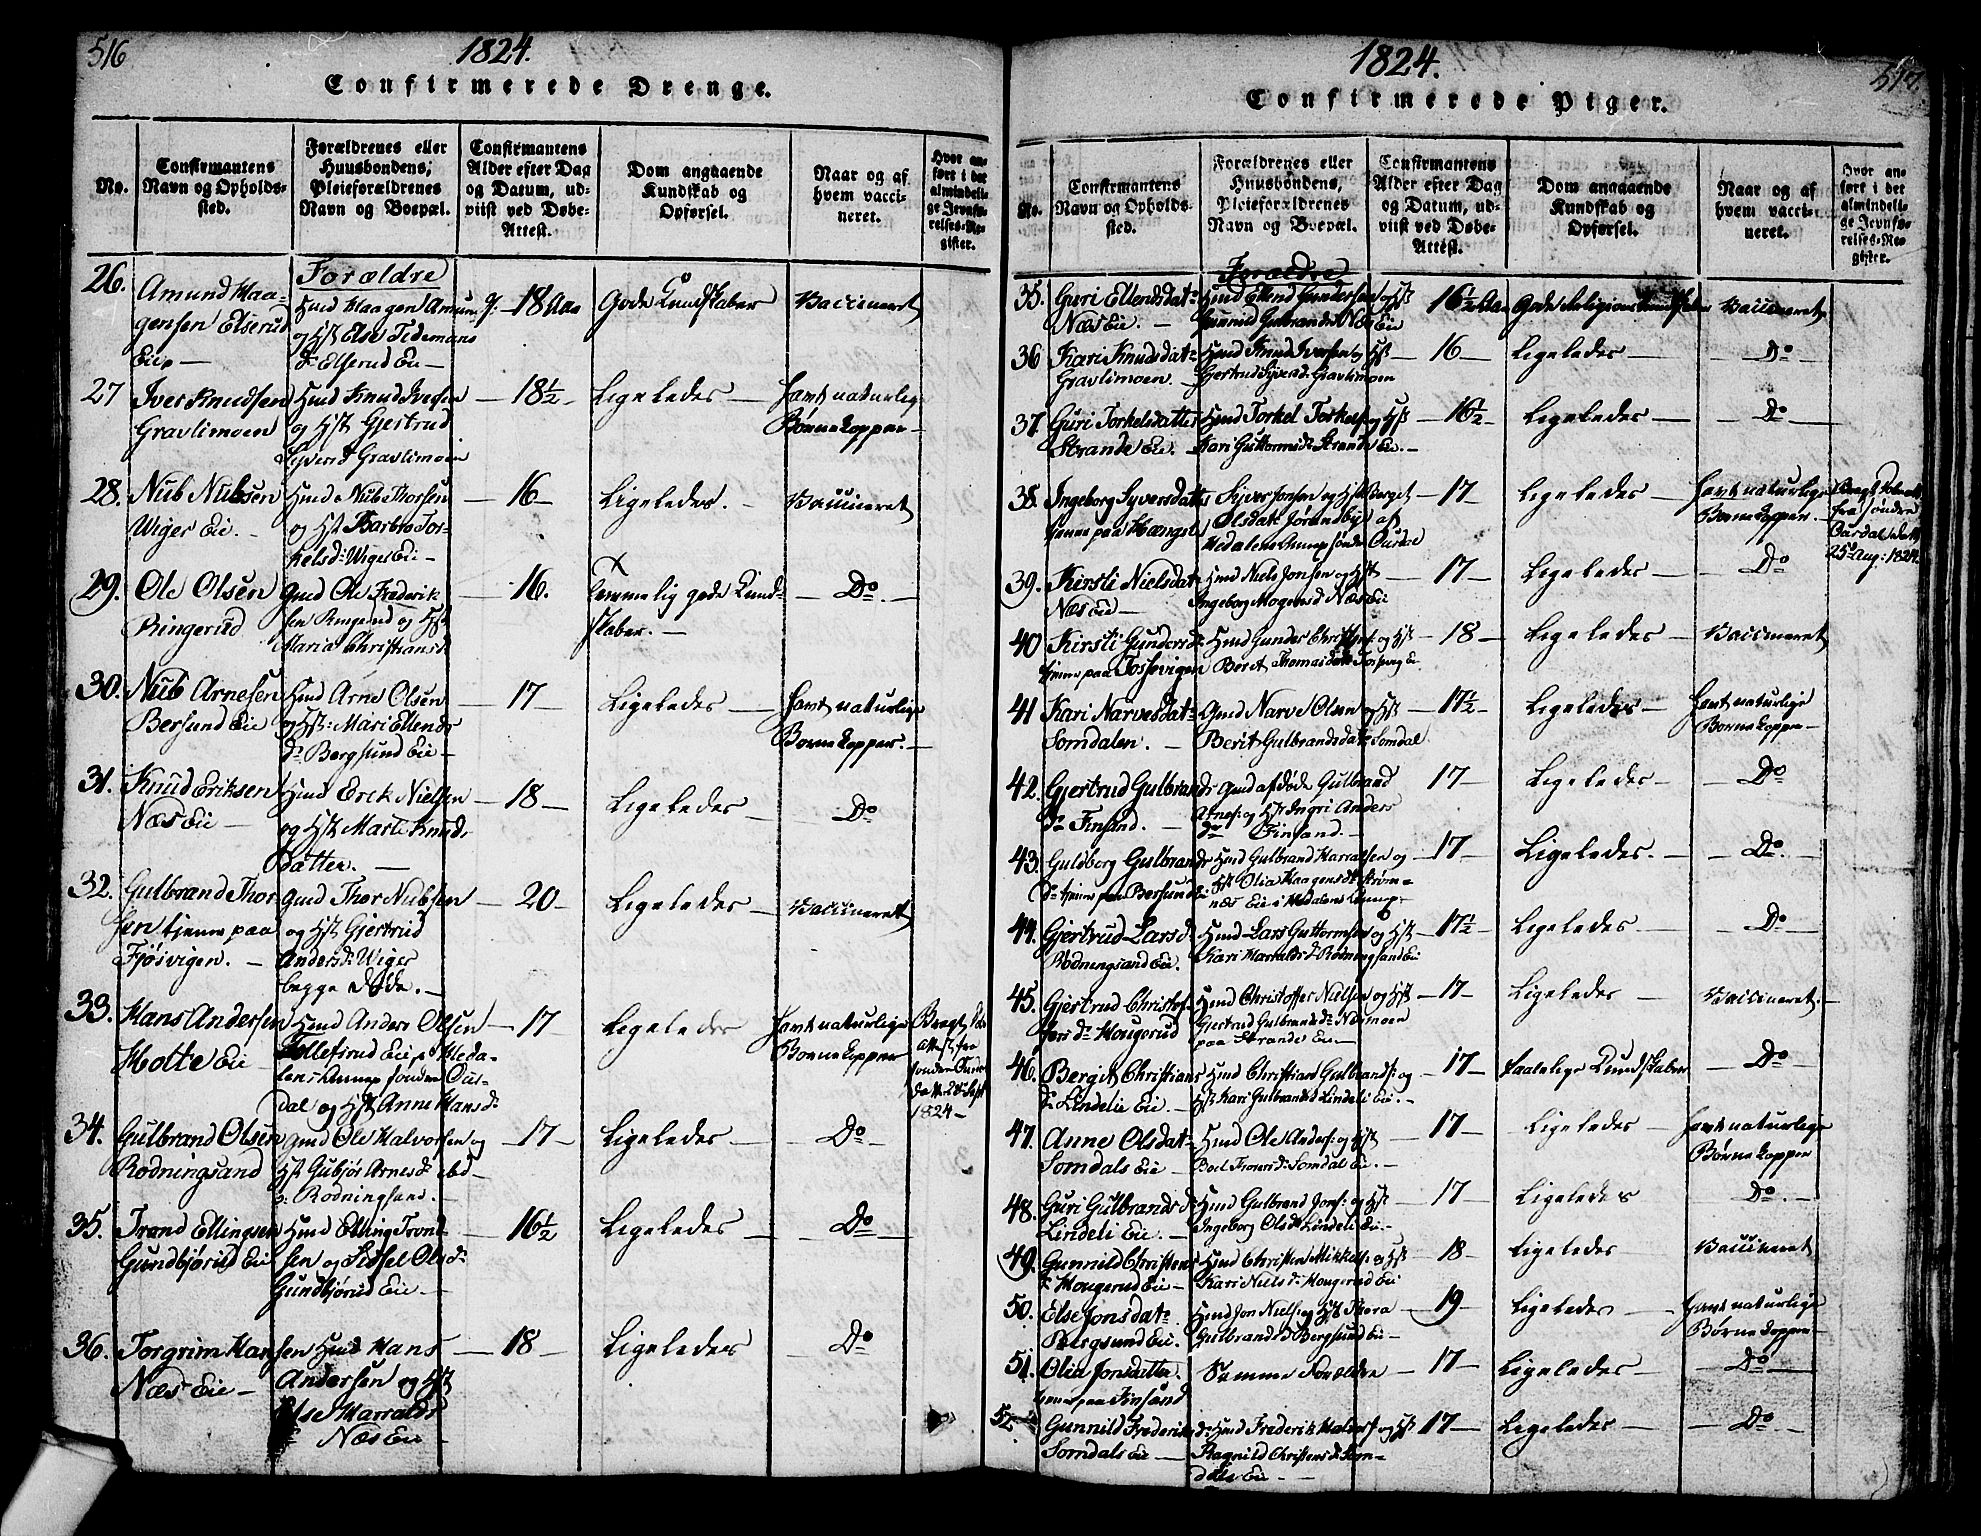 516
1824.
Confirmerede Drenge.
No.
Confirmantens
Navn og Opholds-
sted.
Forældrenes eller
Huusbondens,
Pleieforældrenes
Navn og Boepæl.
Confirmantens
Alder efter Dag
og Datum, ud-
viist ved Døbe-
Attest.
Dom angaaende
Kundskab og
Opførsel.
Naar og af
hvem vacci-
neret.
Hvor an-
ført i det
almindeli-
ge Jevnfø-
relses-Re-
gister.
Forældre
26.
Amund Haa-
gensen Elserud
Eie —
Hmd Haagen Amunds:
og Hst Else Tidemans
Dr Elserud Eie —
18 Aar
Gode Kundskaber
Vaccineret
27
Iver Knudsen
Gravlimoen
Hmd Knud Iversen
og Hst Gjertrud
Syversd Gravlimoen
— 18½ —
Ligeledes —
havt naturlige
Børnekopper —
28.
Nub Nubsen
Wiger Eie. —
Hmd Nub Thorsen
og Hst Barbro Tor-
kelsd: Wiger Eie —
— 16 —
Ligeledes. —
Vaccineret
29.
Ole Olsen
Ringerud
Gmd Ole Frederik-
sen Ringerud og Hst
Maria Christiansd
— 16.
temmelig gode Kund-
skaber. —
— Do. —
30.
Nub Arnesen
Bersund Eie
Hmd Arne Olsen
og Hst: Mari Ellends
Dr Bergsund Eie —
— 17 —
Ligeledes —
havt naturlige
Børnekopper. —
31.
Knud Eriksen
Næs Eie —
Hmd Erik Nielsen
og Hst Marte Knuds
Datter. —
— 18 —
Ligeledes —
Do
32.
Gulbrand Thor-
sen tjener paa
Fjösvigen. —
Gmd Thor Nubsen
og Hst Gjertrud
Andersd: Wiger
begge døde. —
— 20 —
Ligeledes —
Vaccineret
33.
Hans Andersen
Motte Eie —
Hmd Anders Olsen
Eie i Heda-
lens Annex søndre Our-
dal og Hst Anne Hansd:
— 17
Ligeledes
havt naturlige
Børnekopper
1824 —
34.
Gulbrand Olsen
Rodningsand
Gmd Ole Halvorsen og
Hst Gubjør Arnesd: ibd
Rodningsand. —
— 17 —
Ligeledes —
Do —
35.
Trond Ellingsen
Gundbjørud Eie
Hmd Elling Trond-
sen og Sidsel Olsd:
Gundbjørud Eie. —
— 16½
Ligeledes —
— Do —
36.
Torgrim Hansen
Næs Eie —
Hmd Hans
Andersen og Hst
Else Harralds
Dr Næs Eie —
— 18 —
Ligeledes
— Do —
517.
1824.
Confirmerede Piger.
No.
Confirmantens
Navn og Opholds-
sted.
Forældrenes eller
Huusbondens,
Pleieforældrenes
Navn og Boepæl.
Confirmantens
Alder efter Dag
og Datum, ud-
viist ved Døbe-
Attest.
Dom angaaende
Kundskab og
Opførsel.
Naar og af
hvem vacci-
neret.
Hvor an-
ført i det
almindeli-
ge Jevnfø-
relses-Re-
gister.
Forældre
35.
Guri Ellendsdatr
Næs Eie. —
Hmd Ellend Gundersen og Hst
Gunnild Gulbrandsd: Næs Eie
16½ Aar
Gode Religions Kundskaber
Vaccineret
36
Kari Knudsdatr
Gravlimoen. —
Hmd Knud Iversen og Hst
Gjertrud Syversd. Gravlimoen
— 16 —
Ligeledes —
— Do —
37.
Guri Torkelsdatter
Strande Eie. —
Hmd Torkel Torkels: og Hst
Kari Guttormsd: Strande Eie. —
— 16½ —
Ligeledes —
— Do
38.
Ingeborg Syversdatter
tjener paa Hængsl
Syver Jonsen og Hst Berget
Olsdatr Jørandby af
Hedalens Annex søndre Ourdal
— 17 —
Ligeledes —
havt naturlige
Børnekopper. —
fra søndre
25de Aug: 1824.
39.
Kirsti Nielsdatr
Næs Eie —
Hmd Niels Jonsen og Hst
Ingeborg Mogensd Næs Eie
— 17 —
Ligeledes —
— Do —
40
Kirsti Gundersdr
tjener paa Fossevigen
Hmd Gunder Christens: og Hst
Beret Thomasdatr
— 18 —
Ligeledes —
Vaccineret
41
Kari Narvesdatr
Somdalen. —
Gmd Narve Olsen og Hst
Berit Gulbrandsdatr Somdal
— 17½ —
Ligeledes —
havt naturlige
Børnekopper —
42.
Gjertrud Gulbrands
Dr Finsand. —
Gmd afdøde Gulbrand
Arnes: og Hst Ingri Anders
Dr Finsand. —
17 —
Ligeledes —
— Do
43.
Guldborg Gulbrands
Dr tjener paa Bersund
Hmd Gulbrand Harralsen og
Hst Olia Haagensdr Strøm-
næs Eie i Hedalens Annex —
— 17 —
Ligeledes. —
— Do. —
44.
Gjertrud Larsd
Rodningsand Eie.
Hmd Lars Guttormsen og Hst
Kari Harraldsd Rodningsand Eie
— 17½
Ligeledes. —
— Do
45.
Gjertrud Christof-
fersdr Hougerud
Hmd Christoffer Nielsen og Hst
Gjertrud Gulbrandsdr
paa Strande Eie —
— 17 —
Ligeledes —
Vaccineret. —
46.
Bergit Christians
Dr Lindelie Eie. —
Hmd Christian Gulbrands: og
Hst Kari Gulbrandsd Lindeli Eie. —
— 17 —
taalelige Kundskaber
— Do —
47.
Anne Olsdatr
Somdals Eie —
Hmd Ole Anders: og Hst
Somdal Eie. —
— 17 —
Ligeledes —
havt naturlige
Børnekopper
48.
Guri Gulbrandsd:
Lindeli Eie. —
Hmd Gulbrand Jons: og Hst
Ingeborg Olsdr Lindeli Eie. —
— 17
Ligeledes
— Do. —
49.
Gunnild Christens
Dr Hougerud Eie —
Hmd Christen Mikkels: og Hst
Kari Nielsd: Hougerud Eie
— 18 —
Ligeledes
Vaccineret
50.
Else Jonsdatr
Bergsund Eie. —
Hmd Jon Niels: og Hst Thora
Gulbrandsd Bergsund Eie —
— 19 —
Ligeledes —
havt naturlige
Børnekopper —
51.
Olia Jonsdatter.
tjener paa Finsand
Samme Forældre
— 17 —
Ligeledes —
— Do —
52.
Gunnild Frederiksdr
Somdals Eie —
Hmd Frederik Halvors: og Hst
Ragnild Christensdr Som-
dals Eie —
17 —
Ligeledes —
— Do. —